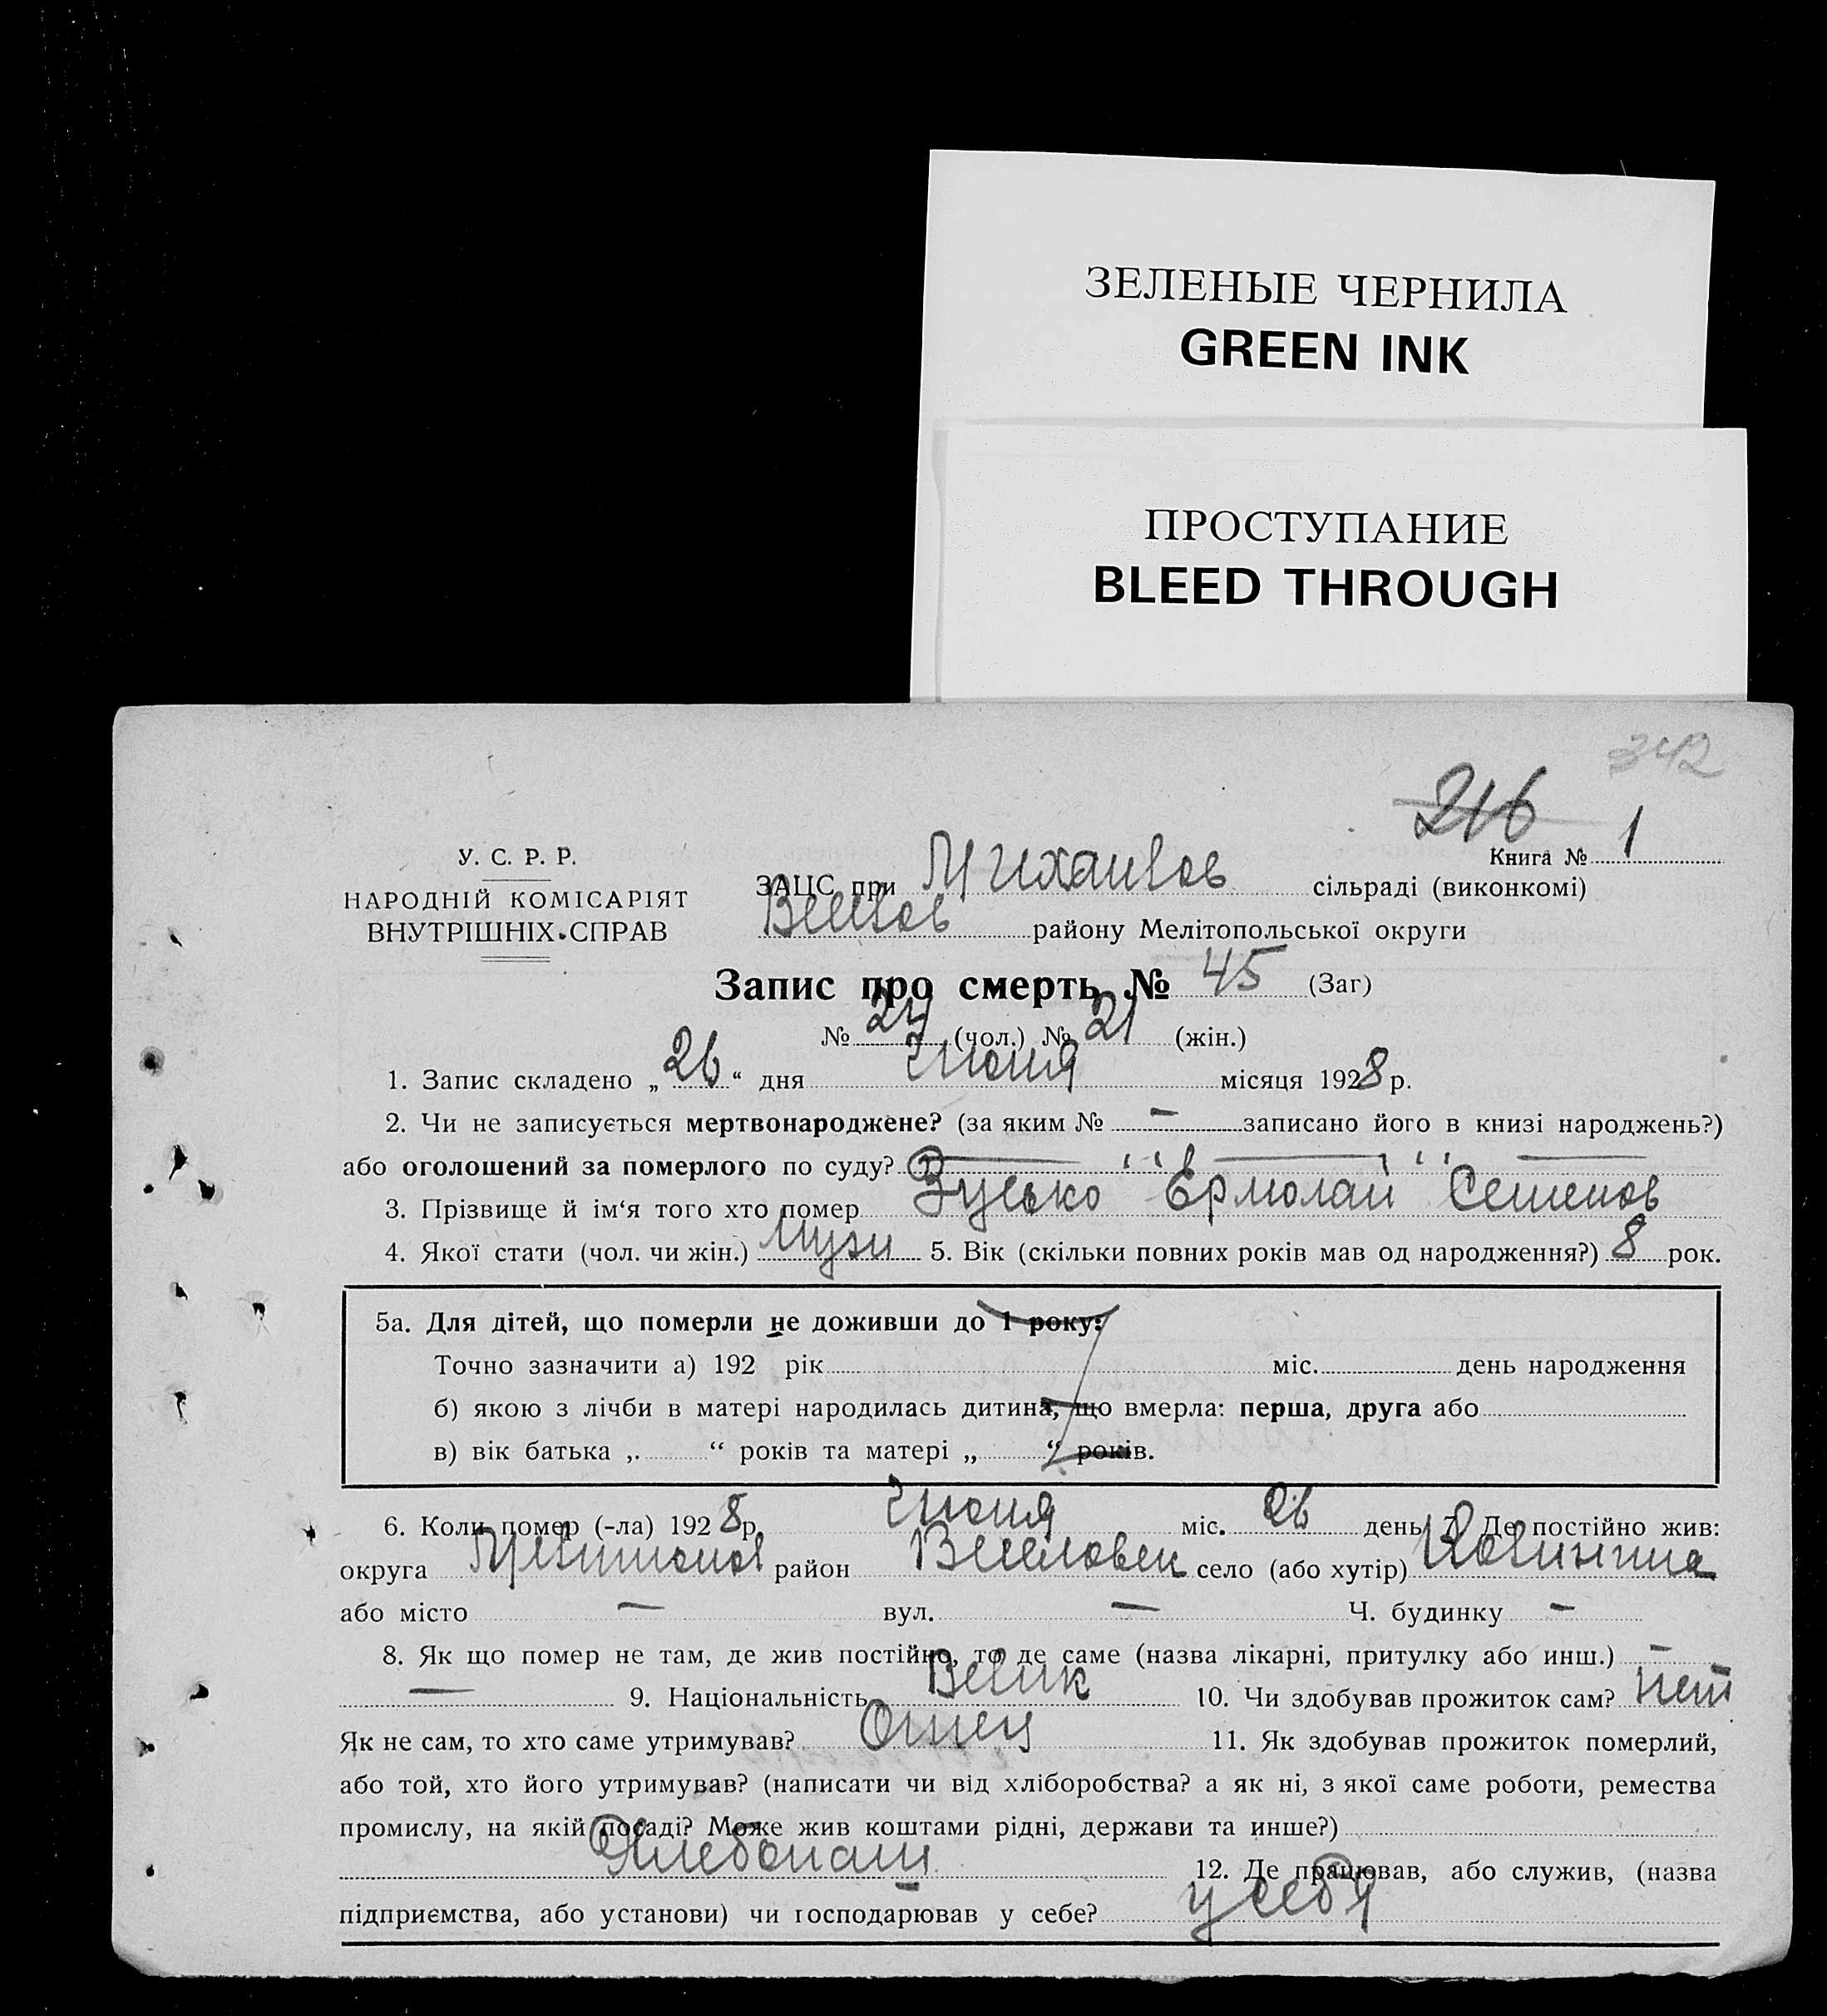 ЗЕЛЕНЫЕ ЧЕРНИЛА
GREEN INK
ПРОСТУПАНИЕ
BLEED THROUGH
342
216
У. С. Р. Р.
НАРОДНІЙ КОМІСАРІЯТ
ВНУТРІШНІХ СПРАВ
Книга № 1
ЗАЦС при Михайлов сільраді (виконкомі)
району Мелітопольської округи
Запис про смерть № 45 (Заг)
№ 24 (чол.) № 21 (жін.)
1. Запис складено „ 26 “ дня Июня місяця 1928 р.
2. Чи не записується мертвонароджене? (за яким № — записано його в книзі народжень?)
або оголошений за померлого по суду?
3. Прізвище й ім‘я того хто помер Зусько Ермолай Семенов
4. Якої стати (чол. чи жін.) 5. Вік (скільки повних років мав од народження?) 8 рок.
5а. Для дітей, що померли не доживши до 1 року:
Точно зазначити а) 192 рік міс. день народження
б) якою з лічби в матері народилась дитина, що вмерла: перша, друга або
в) вік батька „ “ років та матері „ “ років.
6. Коли помер (-ла) 1928 р. Июня міс. 26 день 7. Де постійно жив:
округа район село (або хутір)
або місто — вул. — Ч. будинку —
8. Як що помер не там, де жив постійно, то де саме (назва лікарні, притулку або инш.) —
— 9. Національність Велик 10. Чи здобував прожиток сам? Нет
Як не сам, то хто саме утримував? Отец 11. Як здобував прожиток померлий,
або той, хто його утримував? (написати чи від хліборобства? а як ні, з якої саме роботи, ремества
промислу, на якій посаді? Може жив коштами рідні, держави та инше?)
Хлебопаш 12. Де працював, або служив, (назва
підприємства, або установи) чи господарював у себе? у себя